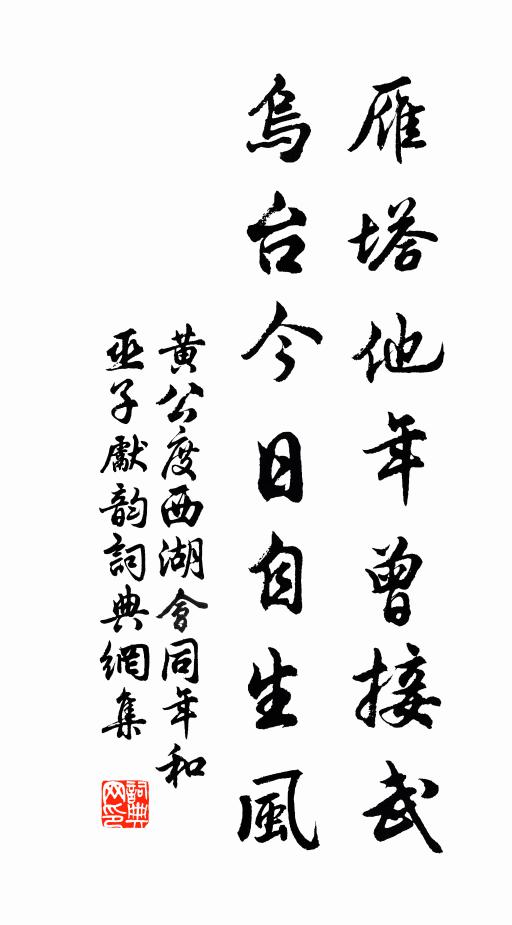 雁塔他年曾接武
烏台今日自生風
黃公度西湖會同年和
巫子獻韵詞典網集
詞典
网印